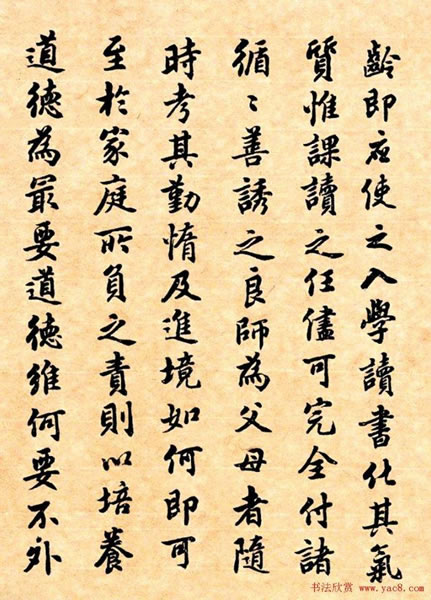 齡即應使之入學讀書化其氣
質惟課讀之任儘可完全付諸
循〻善誘之良師為父母者隨
時考其勤惰及進境如何即可
至於家庭所負之責則以培養
道德為最要道德維何要不外
书法欣赏 www.yac8.com